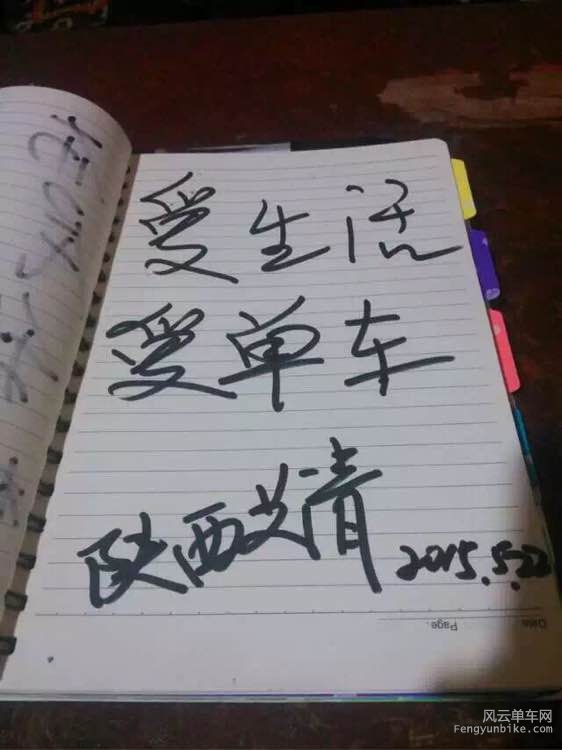 爱生活
爱单车
陕西艾清
2015.5.22
Date:
Page:
风云单车网
Fengyunbike.com